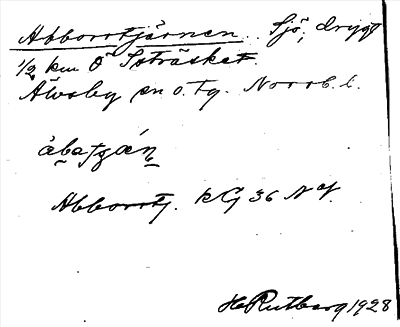 Abborrtjärnen. Sjö, drygt
1/2 km Ö Isträsket.
Älvsby sn o. tg. Norrb. l.
åbatjæ̀n
Abborrtj. kG 36 N of.
H Rutberg 1928